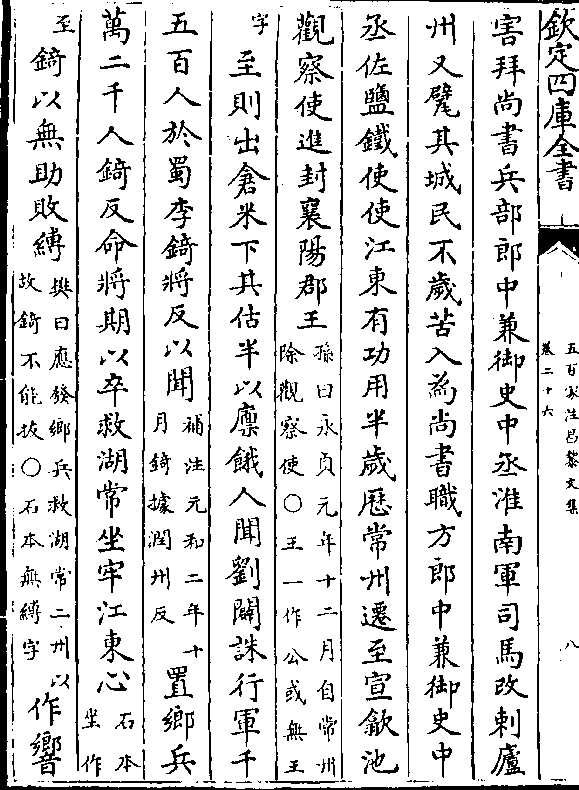 欽定四庫全書
五百家注昌黎文集
卷二十六
八
害拜尚書兵部郎中兼御史中丞淮南軍司馬改刺廬
州又甓其城民不歲苦入為尚書職方郎中兼御史中
丞佐鹽鐵使使江東有功用半歲歴常州遷至宣歙池
觀察使進封襄陽郡王孫曰永貞元年十二月自常州除觀察使〇王一作公或無王
字至則出倉米下其估半以廪餓人聞劉闢誅行軍千
五百人於蜀李錡將反以聞補注元和二年十月錡據潤州反置鄉兵
萬二千人錡反命將期以卒救湖常坐牢江東心石本坐作
至錡以無助敗縛樊曰應發鄉兵救湖常二州以故錡不能拔〇石本無縛字作響